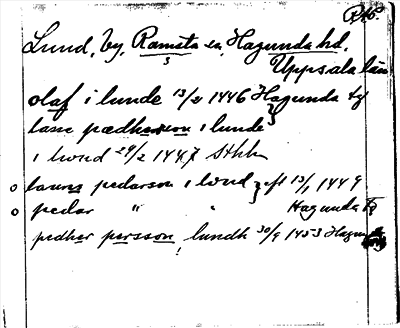 RAP.
Lund, by, Ramsta sn, Hagunda hd,
Uppsala län
olaf i lunde 13/2 1446 Hagunda tg
lasse pædhersson i lunde
i lwnd 29/2 1447 Sthlm
o laurens pedarson i lwnd } eft 13/1 1449
o pedar " " Hagunda tg
pedher persson, lundh 30/9 1453 Hagunda